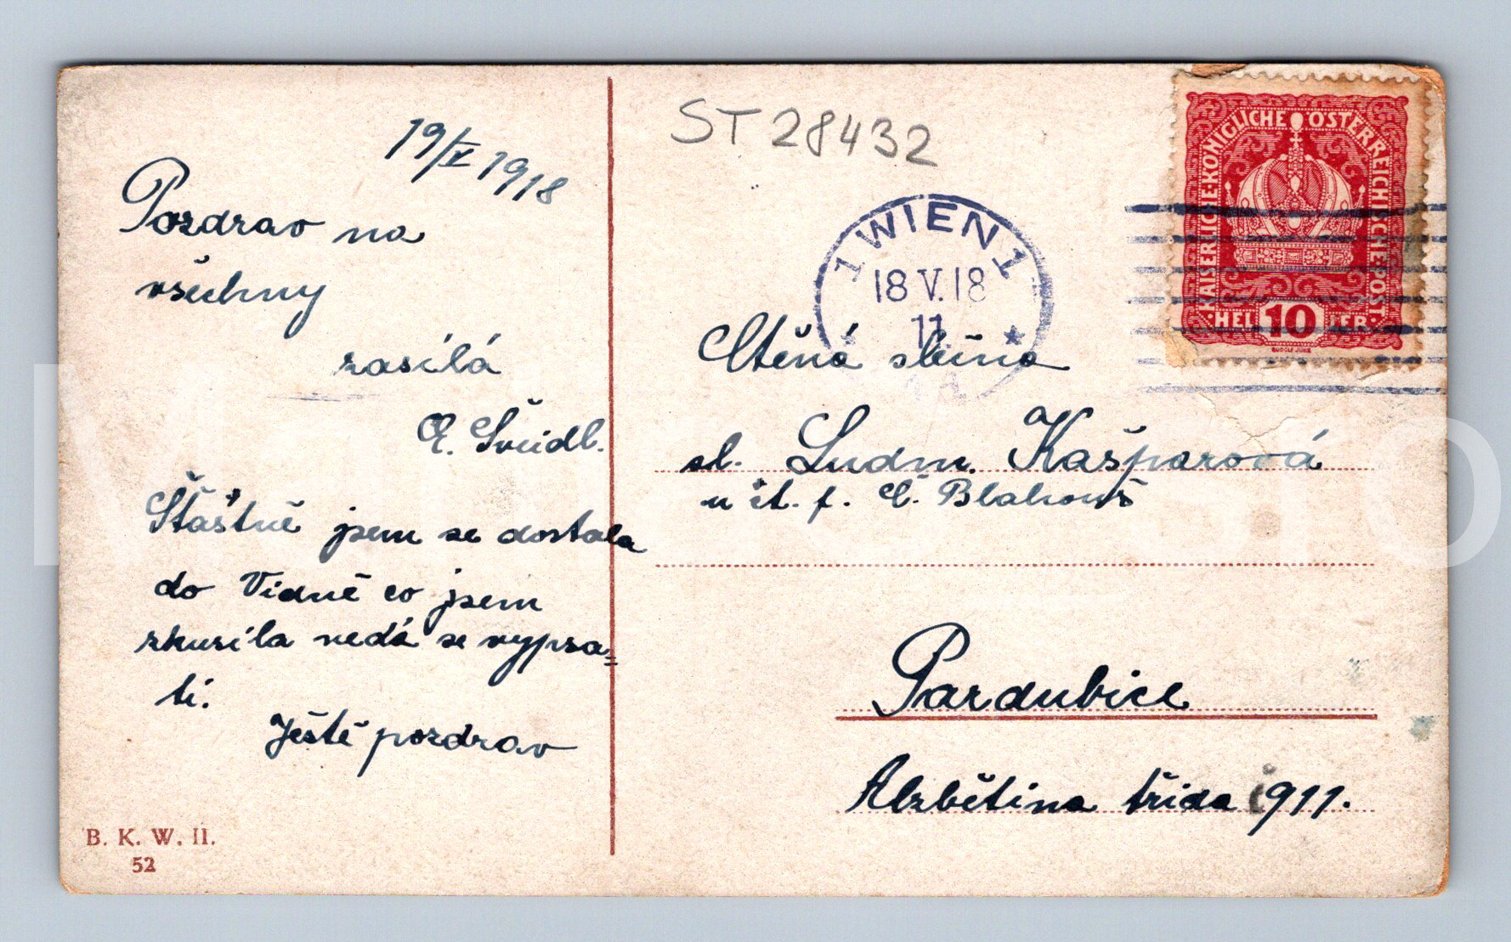 19/V 1918
Pozdrav na
všechny
zasílá
Šveidl.
Šťastně jsem se dostala
do Vídně co jsem
zkusila nedá se vypsa=
ti.
Ještě pozdrav
B. K. W. II.
52
ST 28432
1 WIEN 1
18 V. 18
11
KAISERLICHE KÖNIGLICHE ÖSTERREICHISCHE POST
HELLER 10
Ctěná slečna
sl. Ludm. Kašparová
u ct. p. Č. Blahouš
Pardubice
Alžbětina třída č 911.